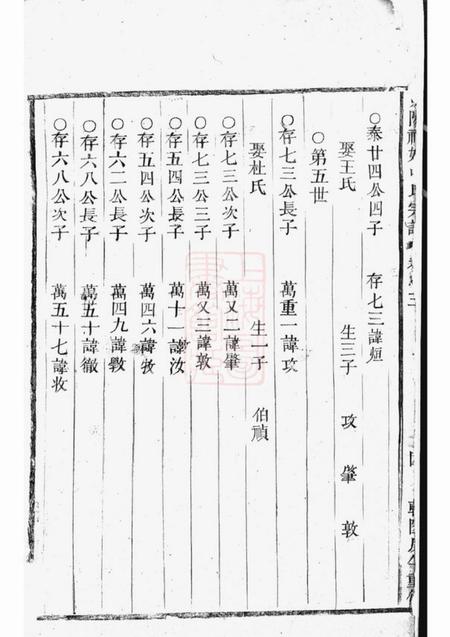 〇泰廿四公四子 存七三諱烜
娶王氏 生三子 攻 肇 敦
〇第五世
〇存七三公長子 萬重一諱攻
娶杜氏 生一子 伯禎
〇存七三公次子 萬又二諱肇
〇存七三公三子 萬又三諱敦
〇存五四公長子 萬十一諱汝
〇存五四公次子 萬四六諱
〇存六二公長子 萬四九諱
〇存六八公長子 萬五十諱徹
〇存六八公次子 萬五十七諱妆